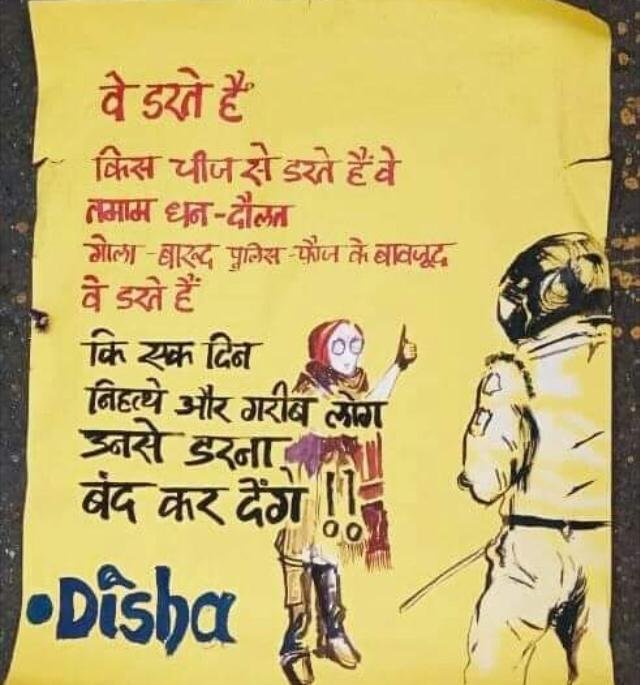 वे डरते हैं
किस चीज से डरते हैं वे
तमाम धन-दौलत
गोला-बारूद पुलिस-फौज के बावजूद
वे डरते हैं
कि एक दिन
निहत्थे और गरीब लोग
उनसे डरना
बंद कर देंगे !!
•Disha